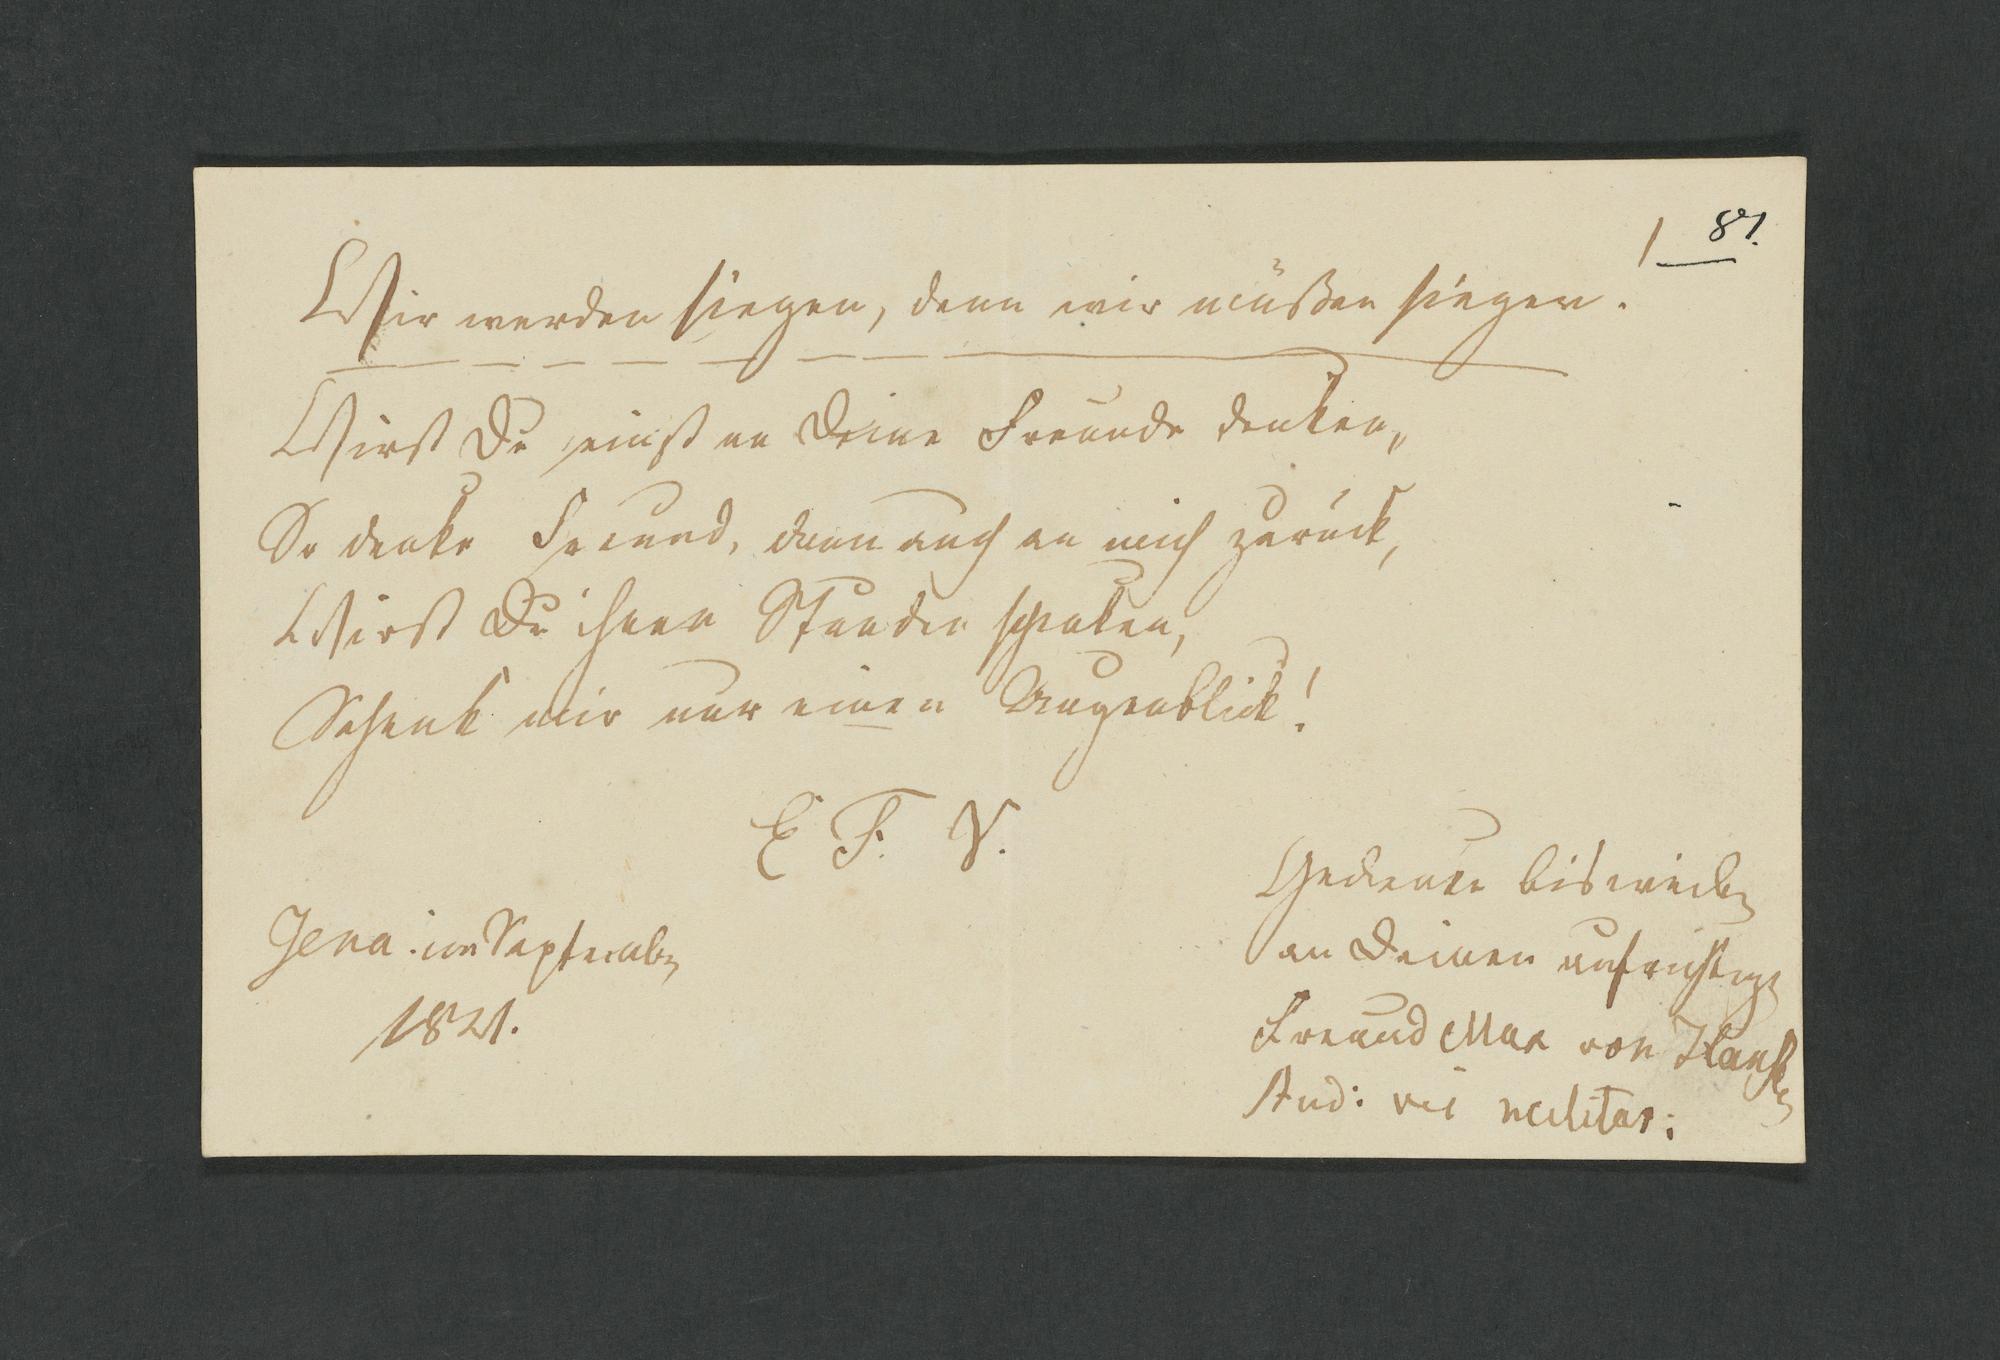 1 87.
Wir werden siegen, denn wir müßen siegen.
Wirst Du einst an Deine Freunde denken,
So denke Freund, dann auch an mich zurück,
Wirst Du ihnen Stunden schenken,
Schenk mir nur einen Augenblick!
E. F. V.
Jena im September
1821.
Gedenke bisweilen
an Deinen aufrichtigen
Freund Max von
rei militar: